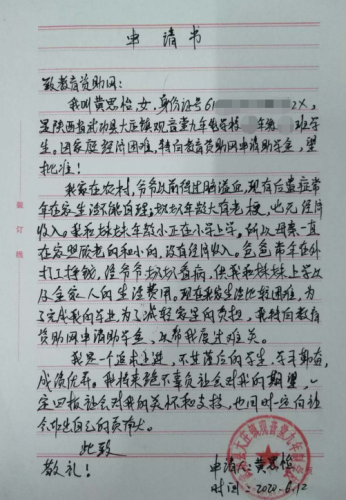 申请书
致教育资助网:
我叫黄思怡,女,身份证号61 2X,
是陕西省武功县大庄镇观音堂九年制学校 年级 班学
生,因家庭经济困难,特向教育资助网申请助学金,望
批准!
我家在农村,爷爷以前得过脑溢血,现有后遗症常
年在家生活不能自理,奶奶年龄大有老 ,也无经济
收入。我和妹妹年龄小正在小学上学,所以母亲一直
在家照顾老的和小的,没有经济收入。爸爸常年在外
打工挣钱,给爷爷奶奶看病,供我和妹妹上学以
及全家人的生活费用。现在我家生活比较困难,为
了完成我的学业,为了减轻家里的负担,我特向教育
资助网申请助学金,以帮我度过难关。
我是一个追求上进,不甘落后的学生,学习勤奋,
成绩优异。我将来绝不辜负社会对我的期望,一
定回报社会对我的关怀和支持,也同时一定向社
会作出自己的贡献。
此致
敬礼!
申请人:黄思怡
时间:2020.6.12
装订线